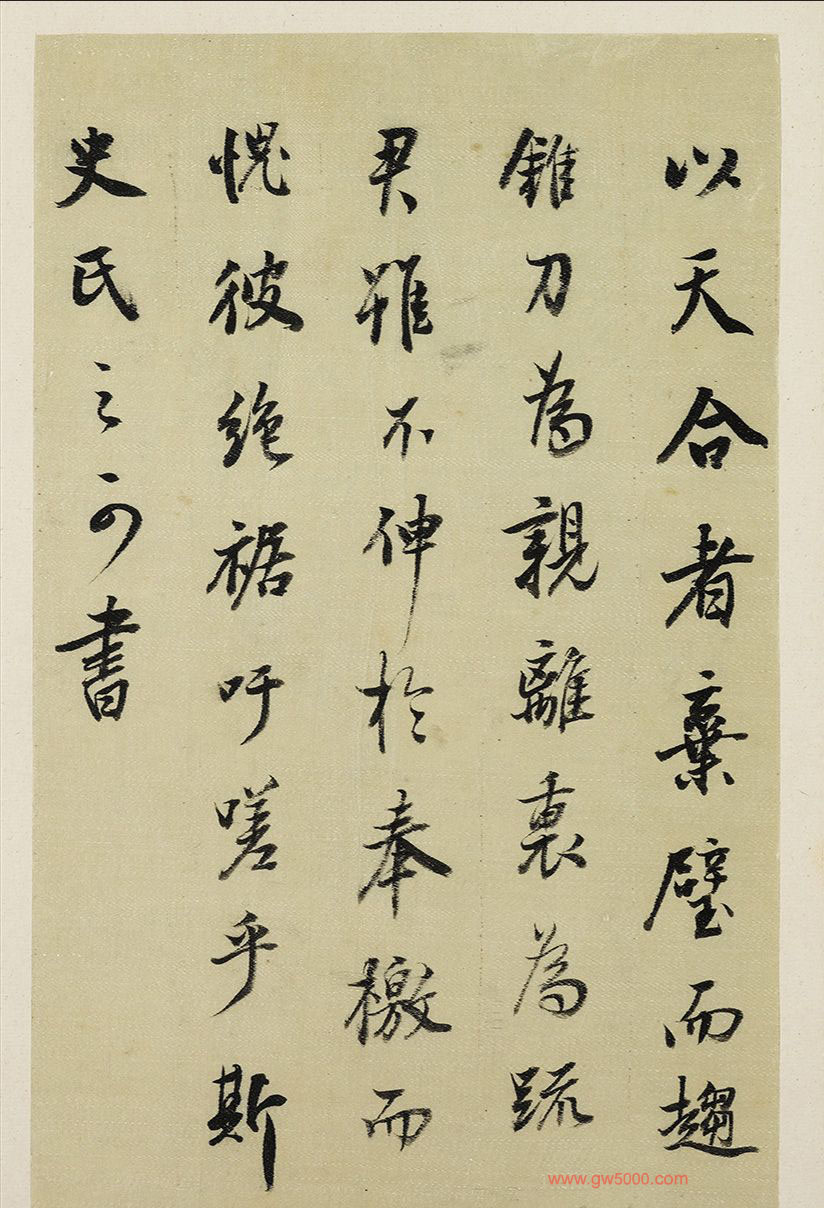 以天合者棄璧而趨
錐刀為親離裏為疏
君雖不伸於奉檄而
愧彼絶裾吁嗟乎斯
史氏之可書
www.gw5000.com